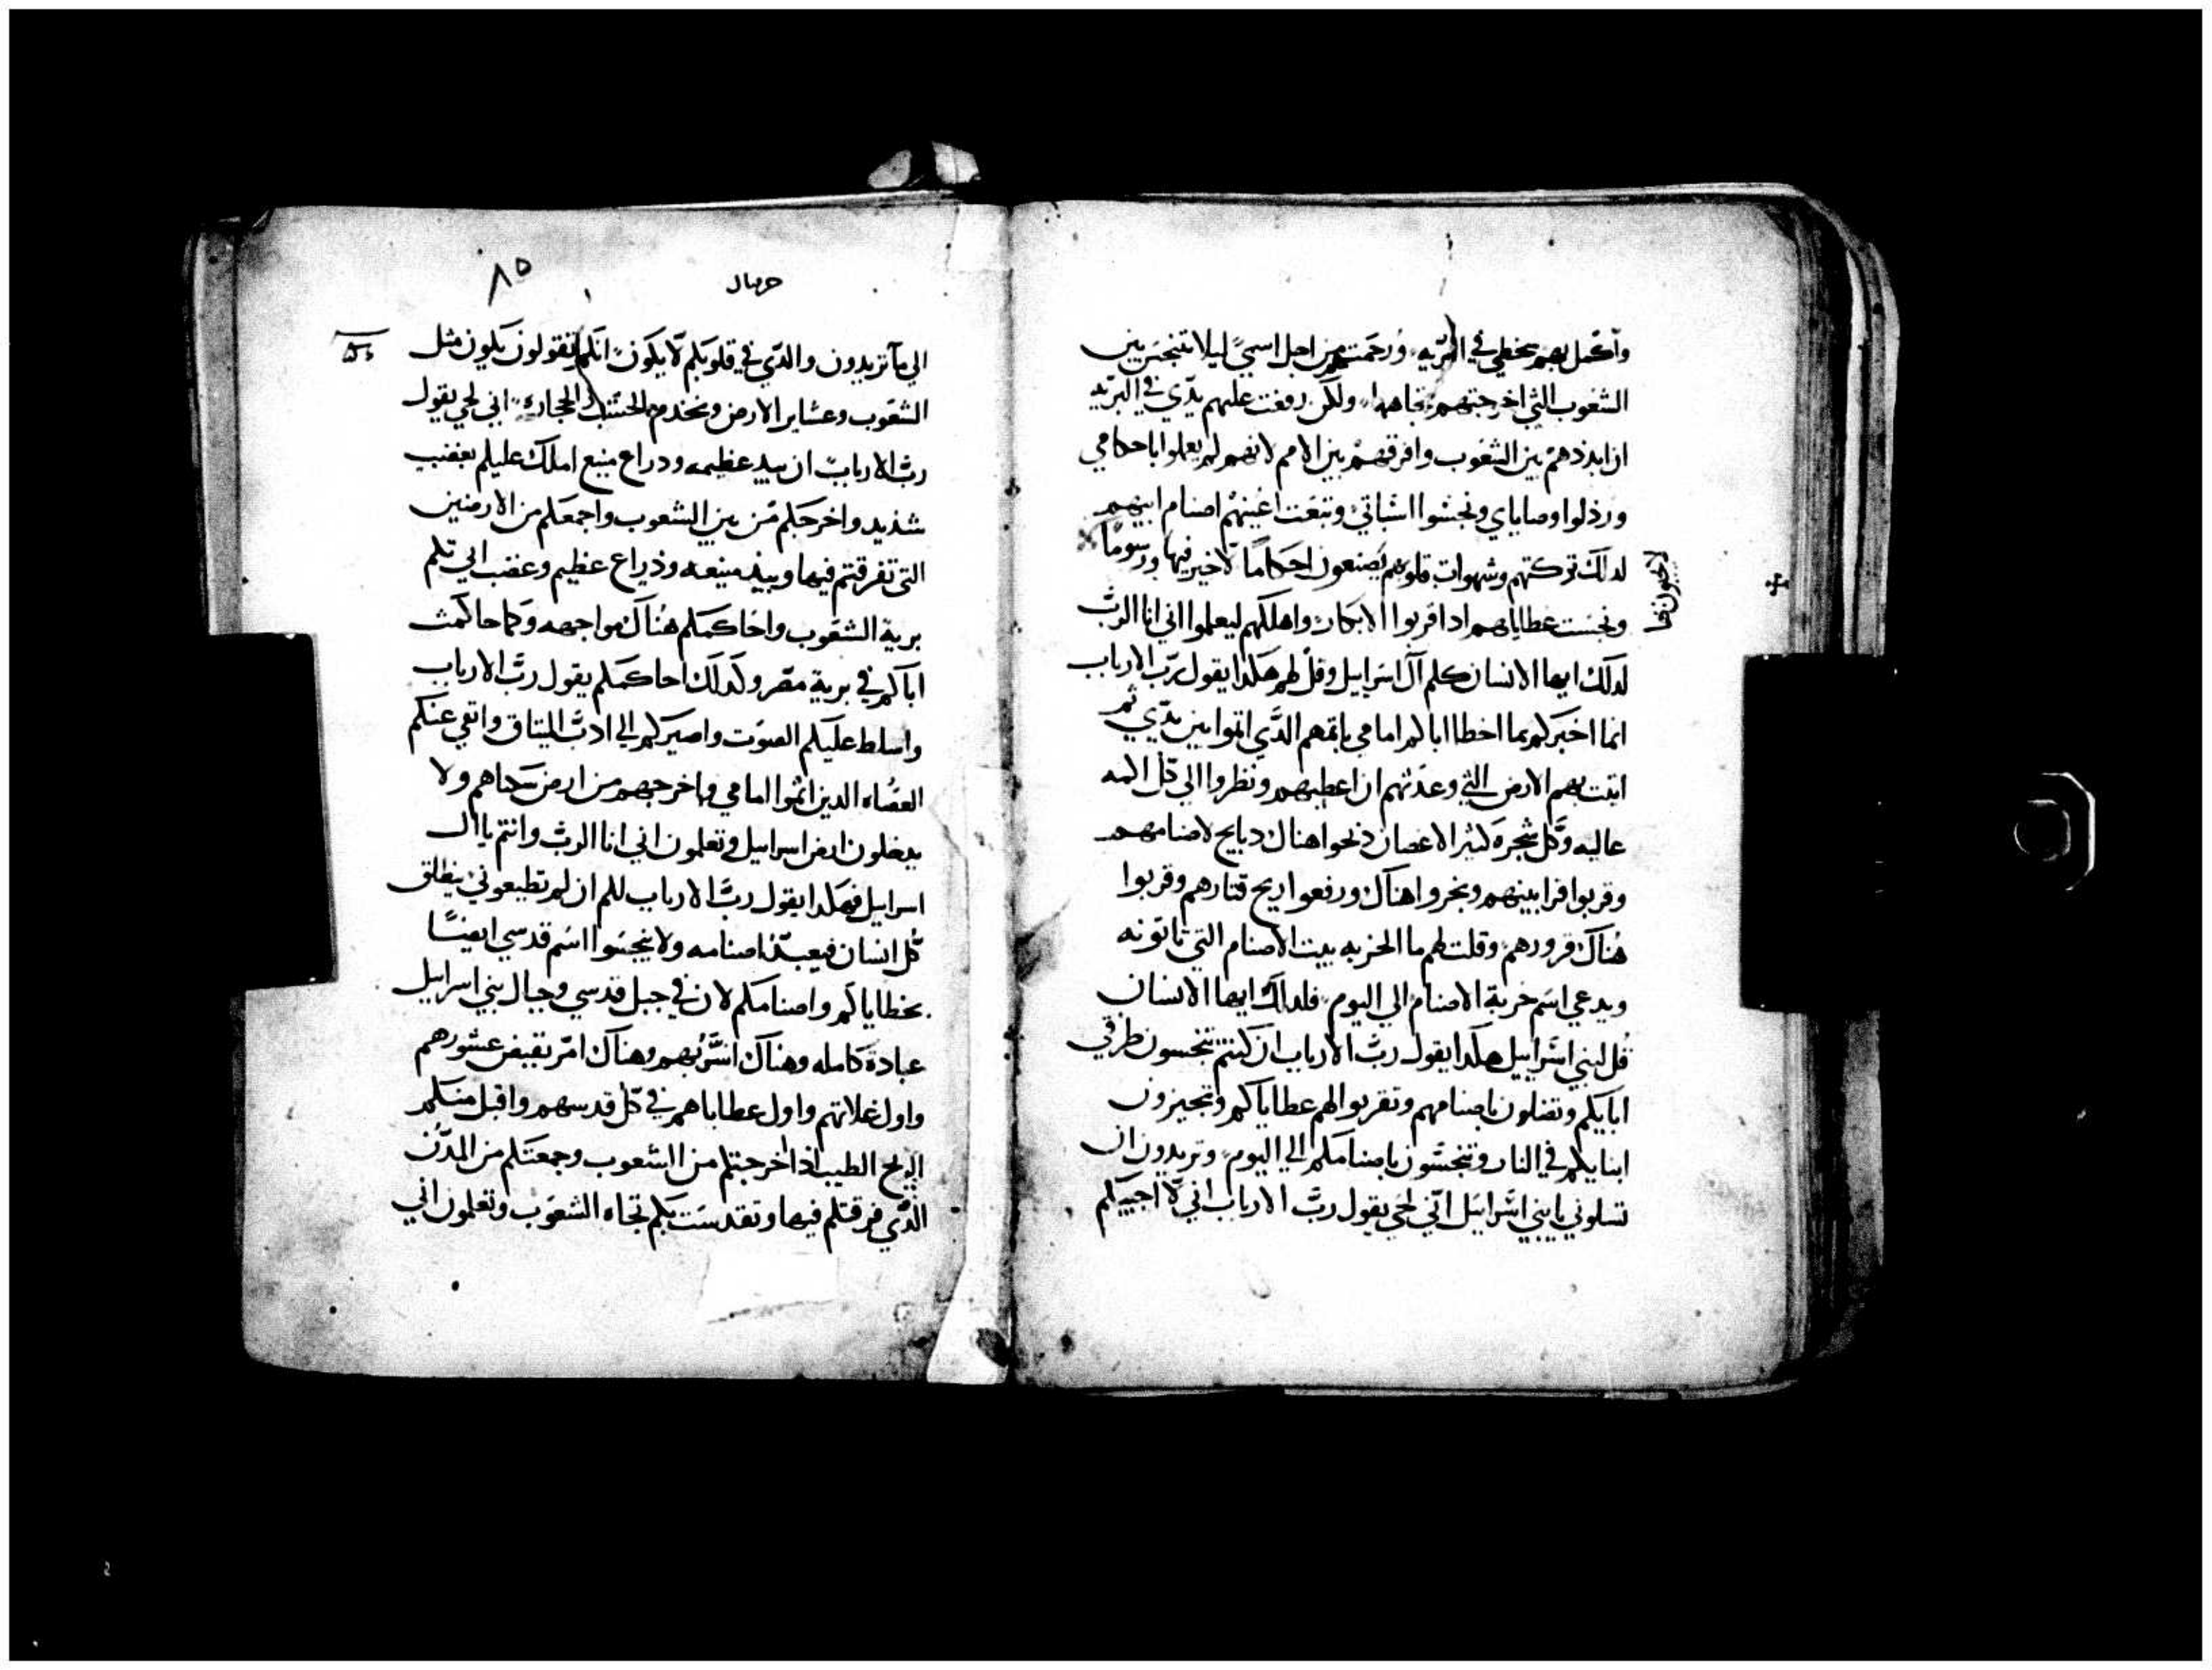 واكمل بهم سخطي في البريه ورحمتهم من اجل اسمي ليلا يتنجس بين
الشعوب التي اخرجتهم تجاهها ولكن رفعت عليهم يدي في البريه
ان ابددهم بين الشعوب وافرقهم بين الامم لانهم لم يعملوا باحكامي
ورذلوا وصاياي ونجسوا السباتي وتبعت اعينهم اصنام ابيهم
لدلك تركتهم وشهوات قلوبهم يصنعون احكاما لا خير فيها ورسوما
لا يحيون فيها
ونجست عطاياهم ادا قربوا الابكار واهلكهم ليعلموا اني انا الرب
لدلك ايها الانسان كلم ال اسراييل وقل لهم هكدا يقول رب الارباب
انما اخبركم بما اخطا اباكم امامي باثمهم الدي اثموا بين يدي ثم
اتيت بهم الارض التي وعدتهم ان اعطيهم ونظروا الي كل اكمه
عاليه وكل شجرة كثير الاغصان ذبحوا هناك دبايح لاصنامهم
وقربوا قرابينهم وبخروا هناك ورفعوا ريح قتارهم وقربوا
هناك قرورهم وقلت لهم ما الخربه بيت الاصنام التي تاتونه
ويدعي اسم خربة الاصنام الي اليوم فلدلك ايها الانسان
قل لبني اسراييل هكدا يقول رب الارباب ان كنتم تتنجسون بطرقي
ابايكم وتضلون باصنامهم وتقربوا لهم عطاياكم وتجيزون
ابنايكم في النار وتتنجسون باصنامكم الي اليوم وتريدون ان
تسلوني يا بني اسراييل اني لحي يقول رب الارباب اني لا اجيبكم
حزقيال
٨٥
الي ما تريدون والدي في قلوبكم لا يكون انكم تقولون نكون مثل
الشعوب وعشاير الارض ونخدم الخشب والحجارة اني لحي يقول
رب الارباب ان بيد عظيمه ودراع منيع املك عليكم بغضب
شديد واخرجكم من بين الشعوب واجمعكم من الارضين
التي تفرقتم فيها وبيد منيعه وذراع عظيم وغضب اتي بكم
برية الشعوب واحاكمكم هناك مواجهه وكما حاكمت
اباكم في برية مصر وكدلك احاكمكم يقول رب الارباب
واسلط عليكم الصوت واصيركم الي ادب الميتاق وانقي عنكم
العصاه الدين اثموا امامي واخرجهم من ارض سكناهم ولا
يدخلون ارض اسراييل وتعلمون اني انا الرب وانتم يا ال
اسراييل فهكدا يقول رب الارباب لكم ان لم تطيعوني ينطلق
كل انسان فيعبد اصنامه ولا ينجسوا اسم قدسي ايضا
بخطاياكم واصنامكم لان في جبل قدسي وجبال بني اسراييل
عبادة كامله وهناك اسر بهم وهناك امر بقبض عشورهم
واول غلاتهم واول عطاياهم في كل قدسهم واقبل منكم
الريح الطيب اذا اخرجتكم من الشعوب وجمعتكم من المدن
الدي فرقتكم فيها وتقدست بكم تجاه الشعوب وتعلمون اني